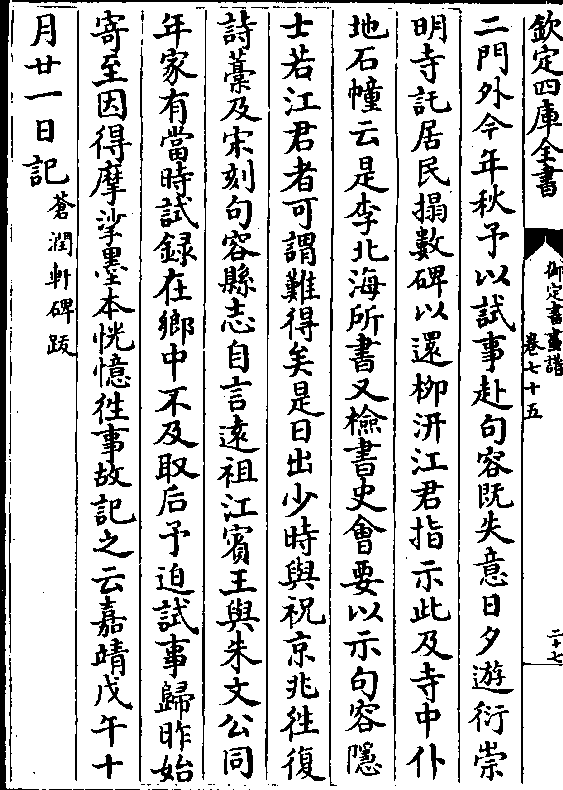 欽定四庫全書
御定書畫譜
卷七十五
二十七
二門外今年秋予以試事赴句容既失意日夕遊衍崇
明寺託居民搨數碑以還栁汧江君指示此及寺中仆
地石幢云是李北海所書又檢書史會要以示句容隱
士若江君者可謂難得矣是日出少時與祝京兆徃復
詩藁及宋刻句容縣志自言遠祖江賓王與朱文公同
年家有當時試録在鄉中不及取后予迫試事歸昨始
寄至因得摩挲墨本恍憶徃事故記之云嘉靖戊午十
月廿一日記蒼潤軒碑跋